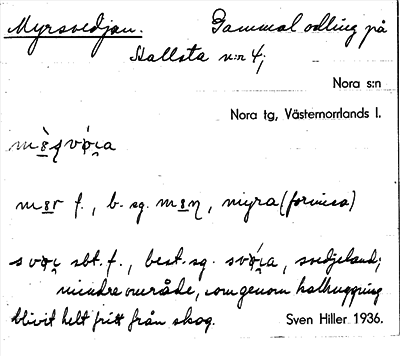 Myrsvedjan. Gammal odling på
Hallsta n:r 4;
Nora s:n
Nora tg, Västernorrlands l.
f., b. sg. , myra (formica)
sbt. f., best. sg. , svedjeland;
mindre område, som genom kalhuggning
blivit helt fritt från skog. Sven Hiller 1936.